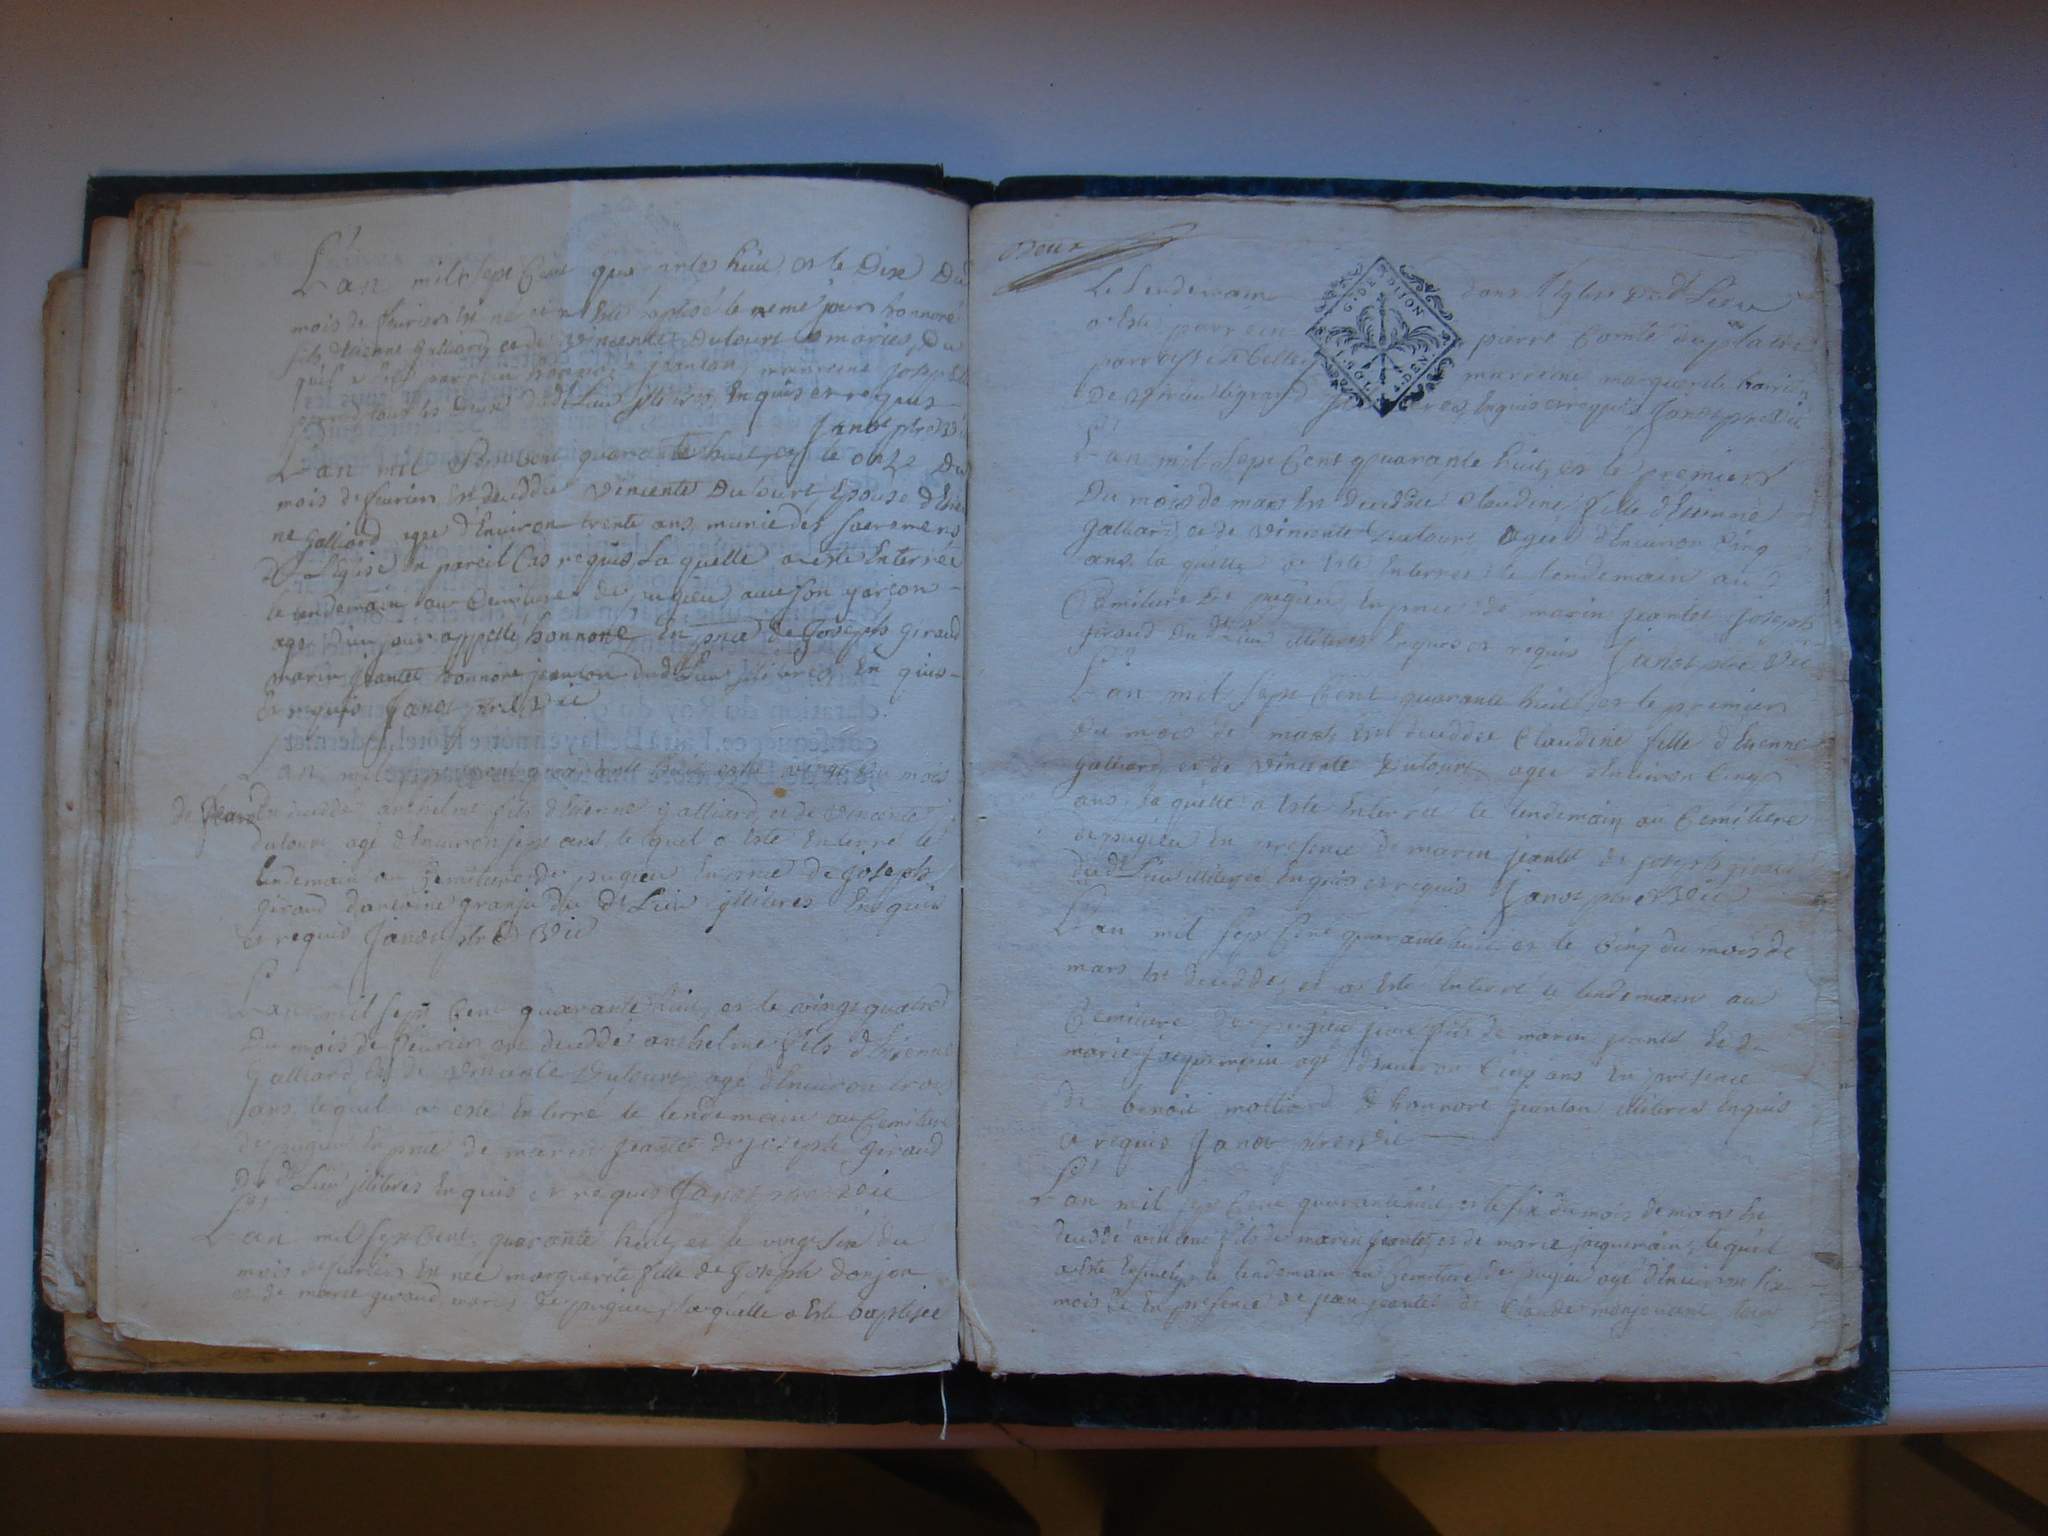 L'an mil sept Cent quarante huit, et le Dixe Du
mois de fevrier est né et a Esté baptisé le meme jour honnoré
fils d'Etienne galliard et de Vincente Dutourt mariés, Du
quel a Esté parrain honnoré jeanton, marreine joseph
tous les Deux Dud Lieu illitres Enquis et requis
Janot ptre Vic
L'an mil Sept Cent quarante huit, et le onze Du
mois de fevrier Est deceddée Vincente Dutourt Epouse d'Etien
ne galliard agee d'Environ trente ans, munie des Sacremens
De L'Eglise en pareil Cas requis La quelle a esté Enterrée
le lendemain au Cemitiere de pugieu avec son garcon
agé d'un jour appellé honnoré En pnce de Joseph giraud
marin jeantet honnore jeanton dud Lieu illitires En quis
Et requis Janot ptre Vic
L'an mil sept cent quarante huit et le vingt du mois
de fevrier Est deceddé anthelme fils d'Etienne galliard, et de Vincente
dutour agé d'Environ sept ans, le quel a Esté Enterré le
lendemain au Cemitiere de pugieu En pnce de joseph
giraud d'antoine granju du d Lieu illitires Enquis
Et requis Janot ptre Vic
L'an mil sept Cent quarante huit, et le vingt quatre
Du mois de fevrier est deceddé anthelme fils d'Etienne
galliard, et de Vincente Dutourt, agé d'Environ trois
ans, lequel a esté Enterré le lendemain au Cemitiere
de pugieu En pnce de marin jeantet de joseph giraud
du d Lieu illitires Enquis et requis Janot ptre Vic
L'an mil sept Cent quarante huit, et le vingt six du
mois de fevrier Est née marguerite fille de Joseph donjon
et de marie giraud mariés de pugieu, la quelle a Esté baptisée
Deux
Le Lendemain dans l'Eglise dud Lieu
a Esté parrein pierre Comte
parroisse de marreine marguerite
De Virieu le grand Enquis et requis Janot ptre Vic
G. DE DIJON
L'an mil sept Cent quarante huit, et le premier
Du mois de mars Est deceddée Claudine fille d'Etienne
galliard, et de Vincente Dutourt, agée d'Environ Cinq
ans, la quelle a Esté Enterrée le lendemain au
Cemitiere De pugieu, En pnce de marin jeantet joseph
giraud du d Lieu illitires Enquis et requis Janot ptre Vic
L'an mil sept Cent quarante huit, et le premier
du mois de mars Est deceddée Claudine fille d'Etienne
galliard, et de Vincente Dutourt agee d'Environ Cinq
ans, la quelle a Esté Enterrée le lendemain au Cemitiere
de pugieu En presence de marin jeantet de joseph giraud
du d Lieu illitires Enquis et requis Janot ptre Vic
L'an mil sept Cent quarante huit et le Cinq du mois de
mars Est deceddé, et a Esté Enterré le lendemain au
Cemitiere de pugieu fils de marin jeantet Et de
marie jacquemain agé d'Environ Cinq ans En presence
de benoit molliard d'honnoré jeanton illitires Enquis
et requis Janot ptre Vic
L'an mil sept Cent quarante huit, et le six du mois de mars Est
deceddé vincent fils de marin jeantet, et de marie jacquemain, lequel
a Esté le lendemain au Cemitiere de pugieu agé d'Environ six
mois En presence de jean jeantet de Claude monjouvent tous